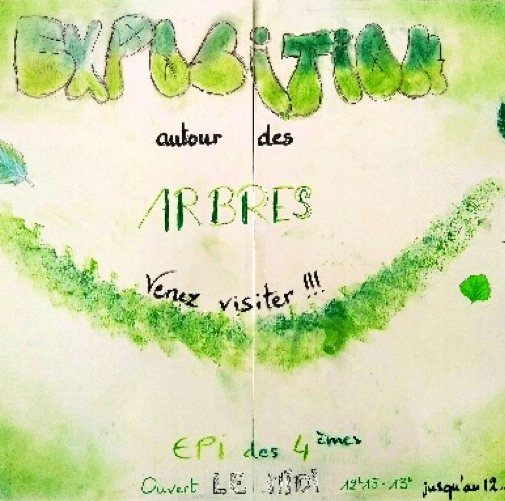 EXPOSITION
autour des
ARBRES
Venez visiter !!!
EPI des 4èmes
Ouvert LE MIDI 12h15 - 13h jusqu'au 12